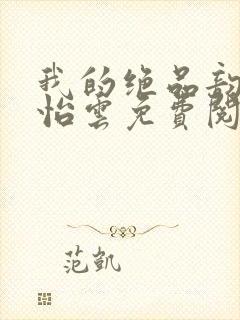 我的绝品
怡雲免費閱
范凱